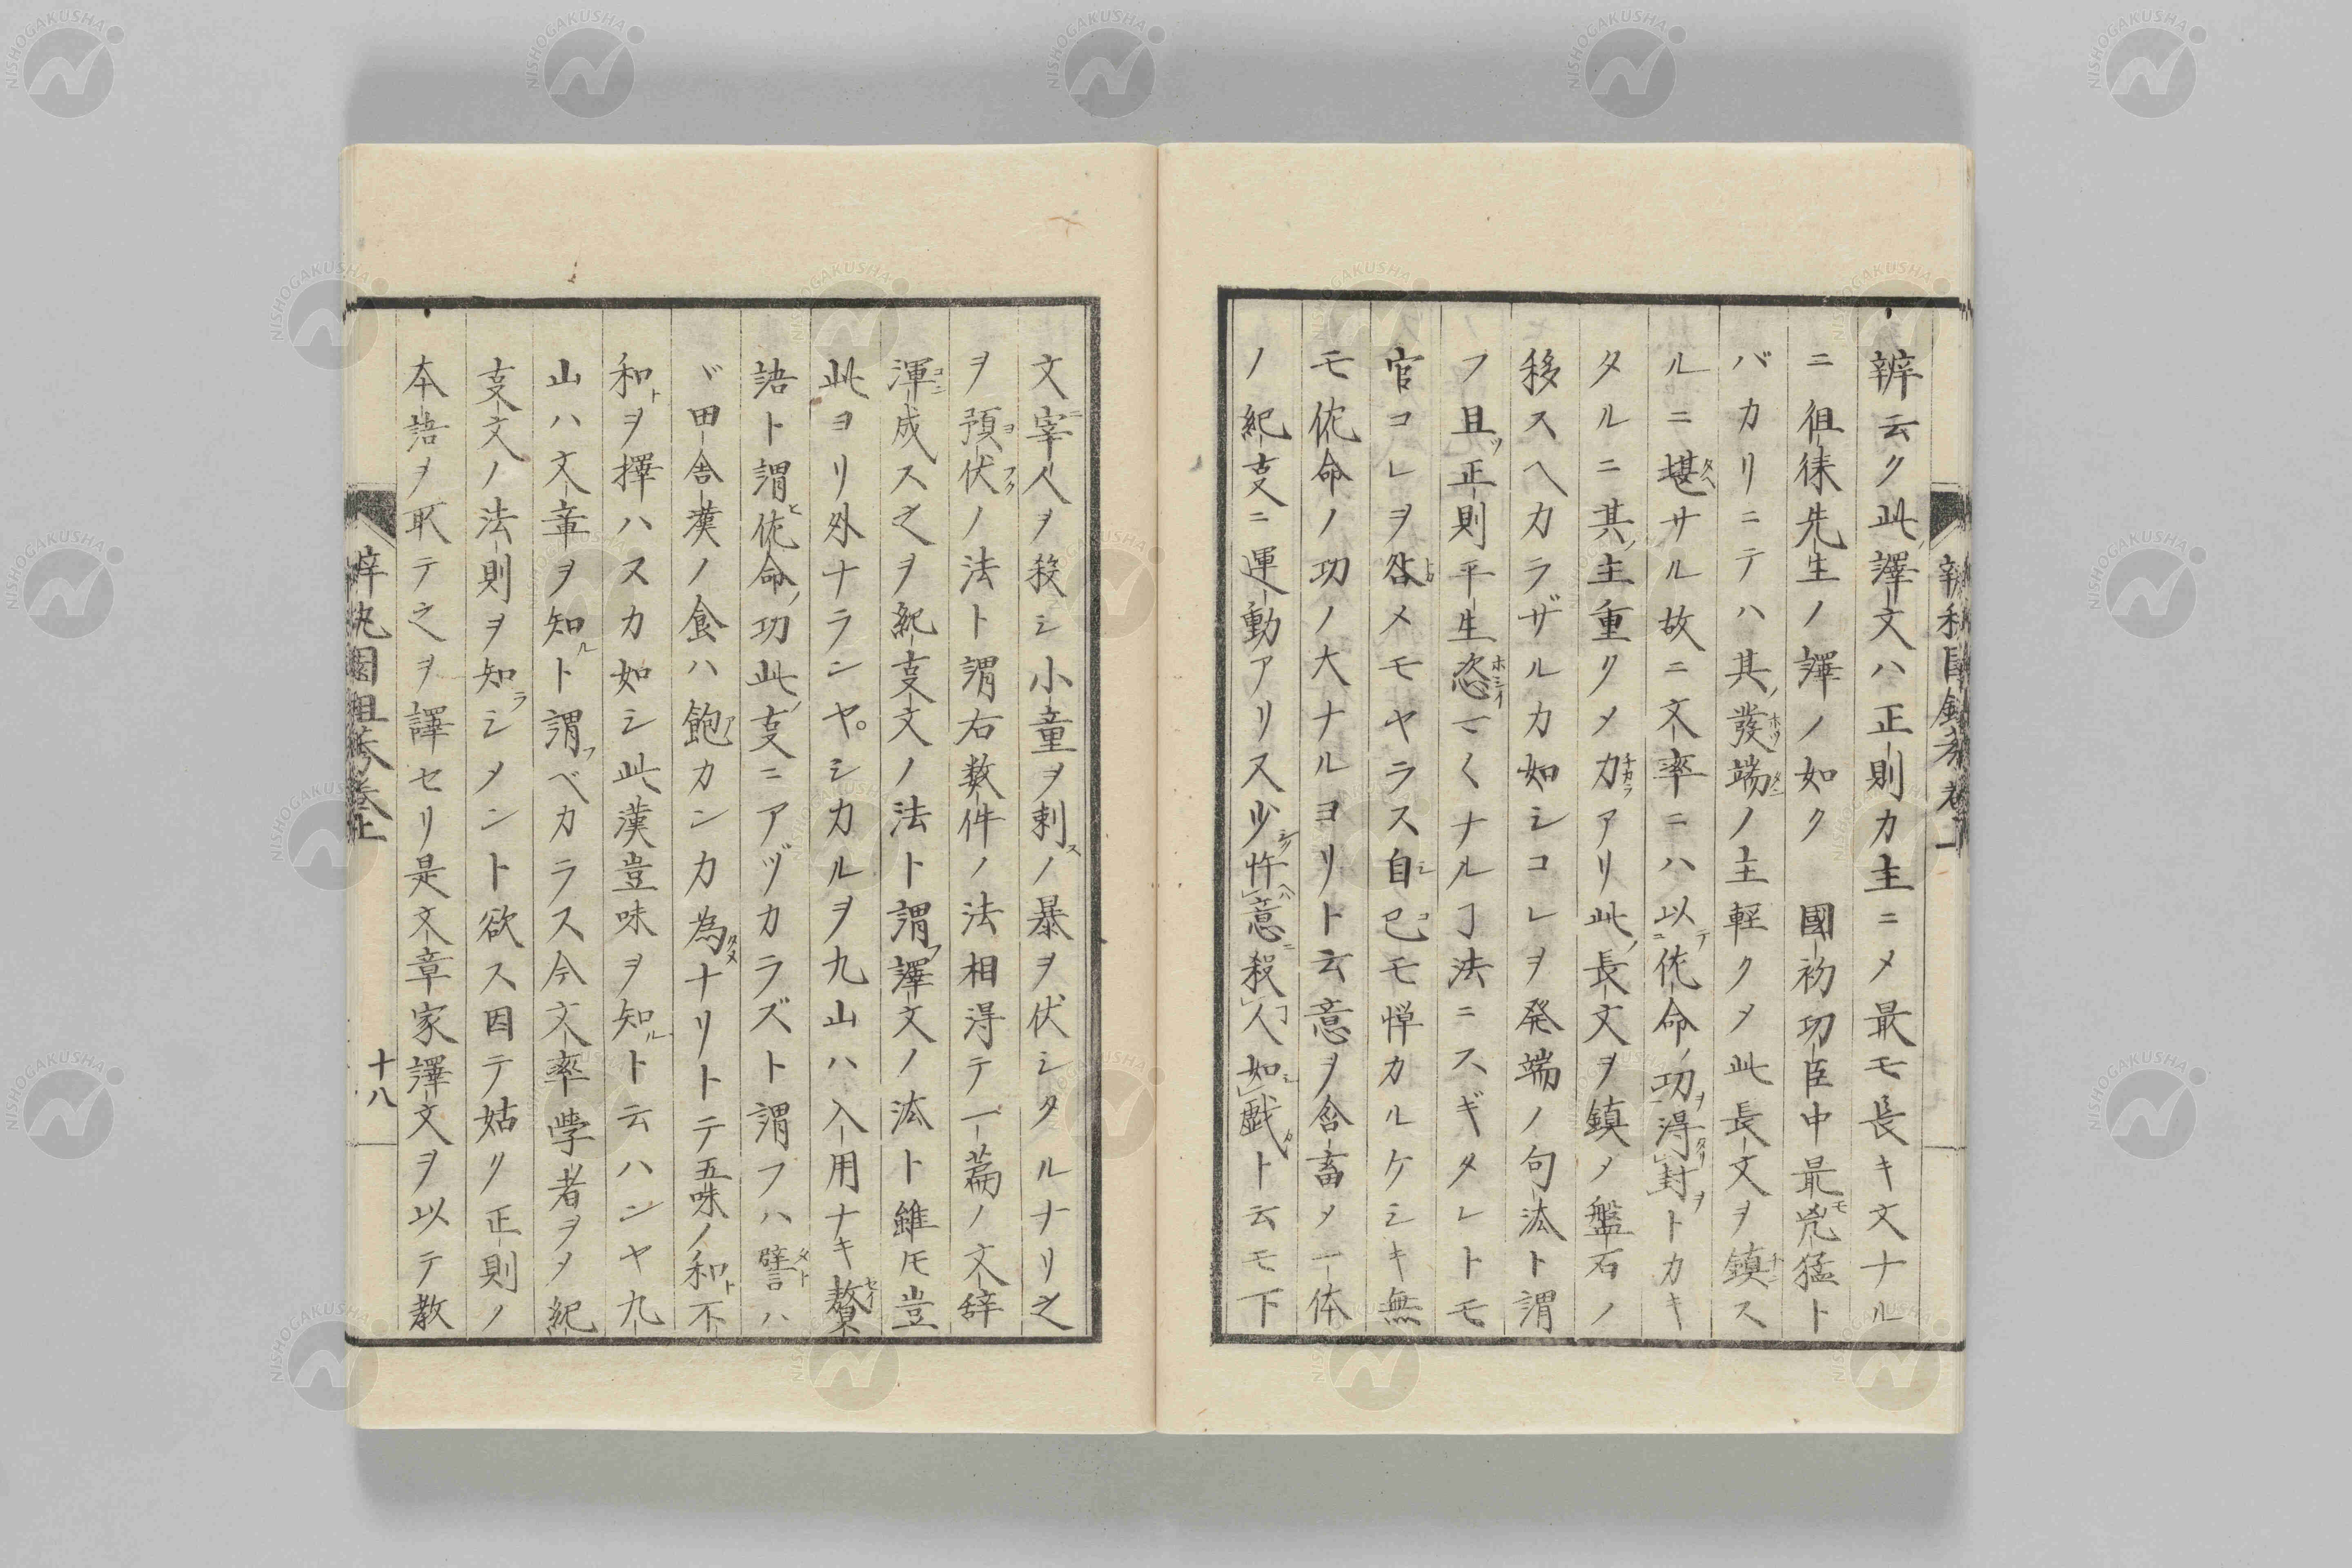 辨云ク此ノ譯文ハ正則カ主ニメ最モ長キ文ナル
ニ徂徠先生ノ譯ノ如ク　國初功臣中最モ兇猛ト
バカリニテハ其ノ發端ノ主軽クメ此長文ヲ鎮ス
ルニ堪サル故ニ文率ニハ以佐命ノ功得封トカキ
タルニ其ノ主重クメ力アリ此ノ長文ヲ鎮メ盤石ノ
移スヘカラザルカ如シコレヲ発端ノ句法ト謂
フ且ツ正則平生恣マヽナルヿ法ニスギタレトモ
官コレヲ咎メモヤラス自己モ憚カルケシキ無
モ佐命ノ功ノ大ナルヨリト云意ヲ含畜メ一体
ノ紀支ニ運動アリ又少忤意殺人如戯ト云モ下
文宰人ヲ殺シ小童ヲ刺スノ暴ヲ伏シタルナリ之
ヲ預伏ノ法ト謂右数件ノ法相得テ一篇ノ文辞
渾成ス之ヲ紀支文ノ法ト謂フ譯文ノ法ト雖モ豈
此ヨリ外ナランヤ。シカルヲ九山ハ入用ナキ贅
語ト謂ヒ佐命ノ功此ノ支ニアヅカラズト謂フハ譬ハ
ヾ田舎漢ノ食ハ飽カンカ為ナリトテ五味ノ和ト不
和トヲ擇ハスカ如シ此漢豈味ヲ知ルト云ハンヤ九
山ハ文章ヲ知ルト謂フベカラス今文率学者ヲメ紀
支文ノ法則ヲ知ラシメント欲ス因テ姑ク正則ノ
本語ヲ取テ之ヲ譯セリ是文章家譯文ヲ以テ教
十八